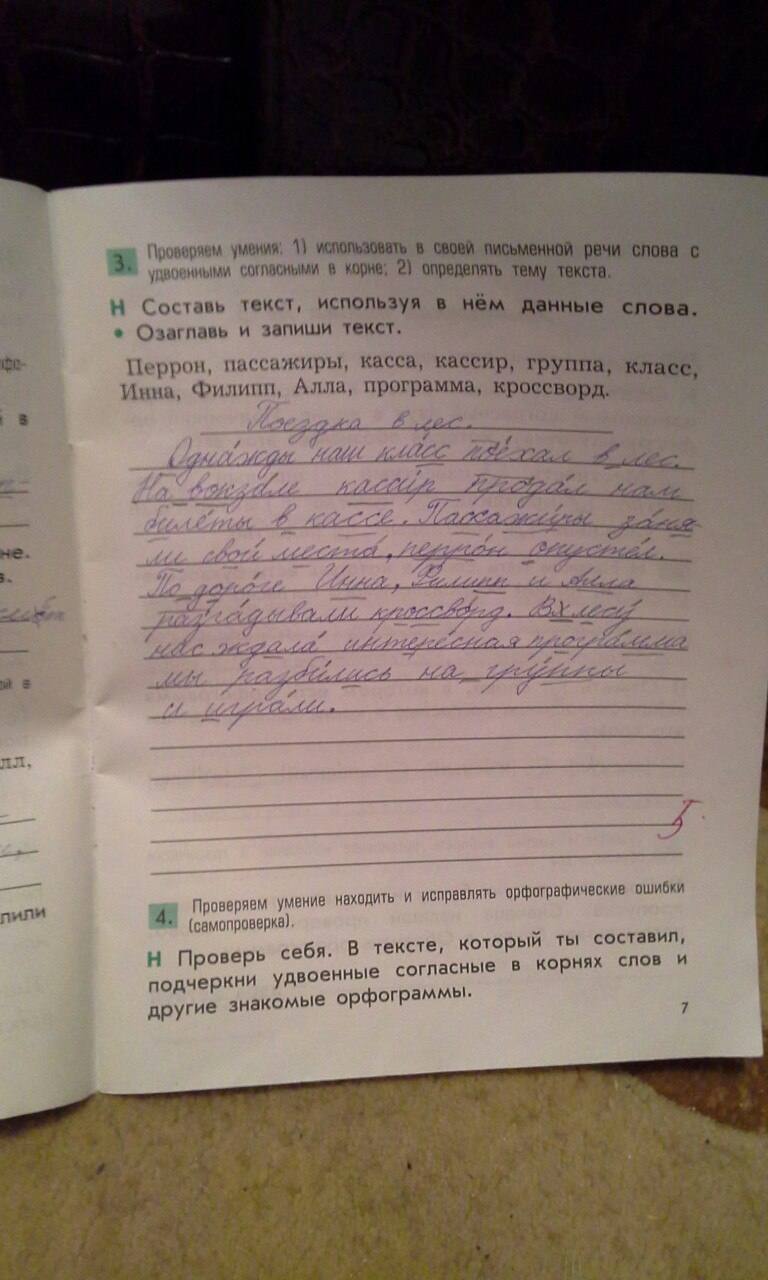 3. Проверяем умения: 1) использовать в своей письменной речи слова с
удвоенными согласными в корне; 2) определять тему текста.
Н Составь текст, используя в нём данные слова.
• Озаглавь и запиши текст.
Перрон, пассажиры, касса, кассир, группа, класс,
Инна, Филипп, Алла, программа, кроссворд.
Поездка в лес.
Одна́жды наш кла́сс пое́хал в лес.
На вокза́ле касси́р прода́л нам
биле́ты в кассе. Пассажи́ры за́ня
ли свои́ места́, перро́н опусте́л.
По доро́ге Инна, Филипп и Алла
разга́дывали кроссво́рд. В лесу́
нас ждала́ интере́сная програ́мма
мы разби́лись на гру́ппы
и игра́ли.
5
4. Проверяем умение находить и исправлять орфографические ошибки
(самопроверка).
Н Проверь себя. В тексте, который ты составил,
подчеркни удвоенные согласные в корнях слов и
другие знакомые орфограммы.
7
не.
лл,
лили